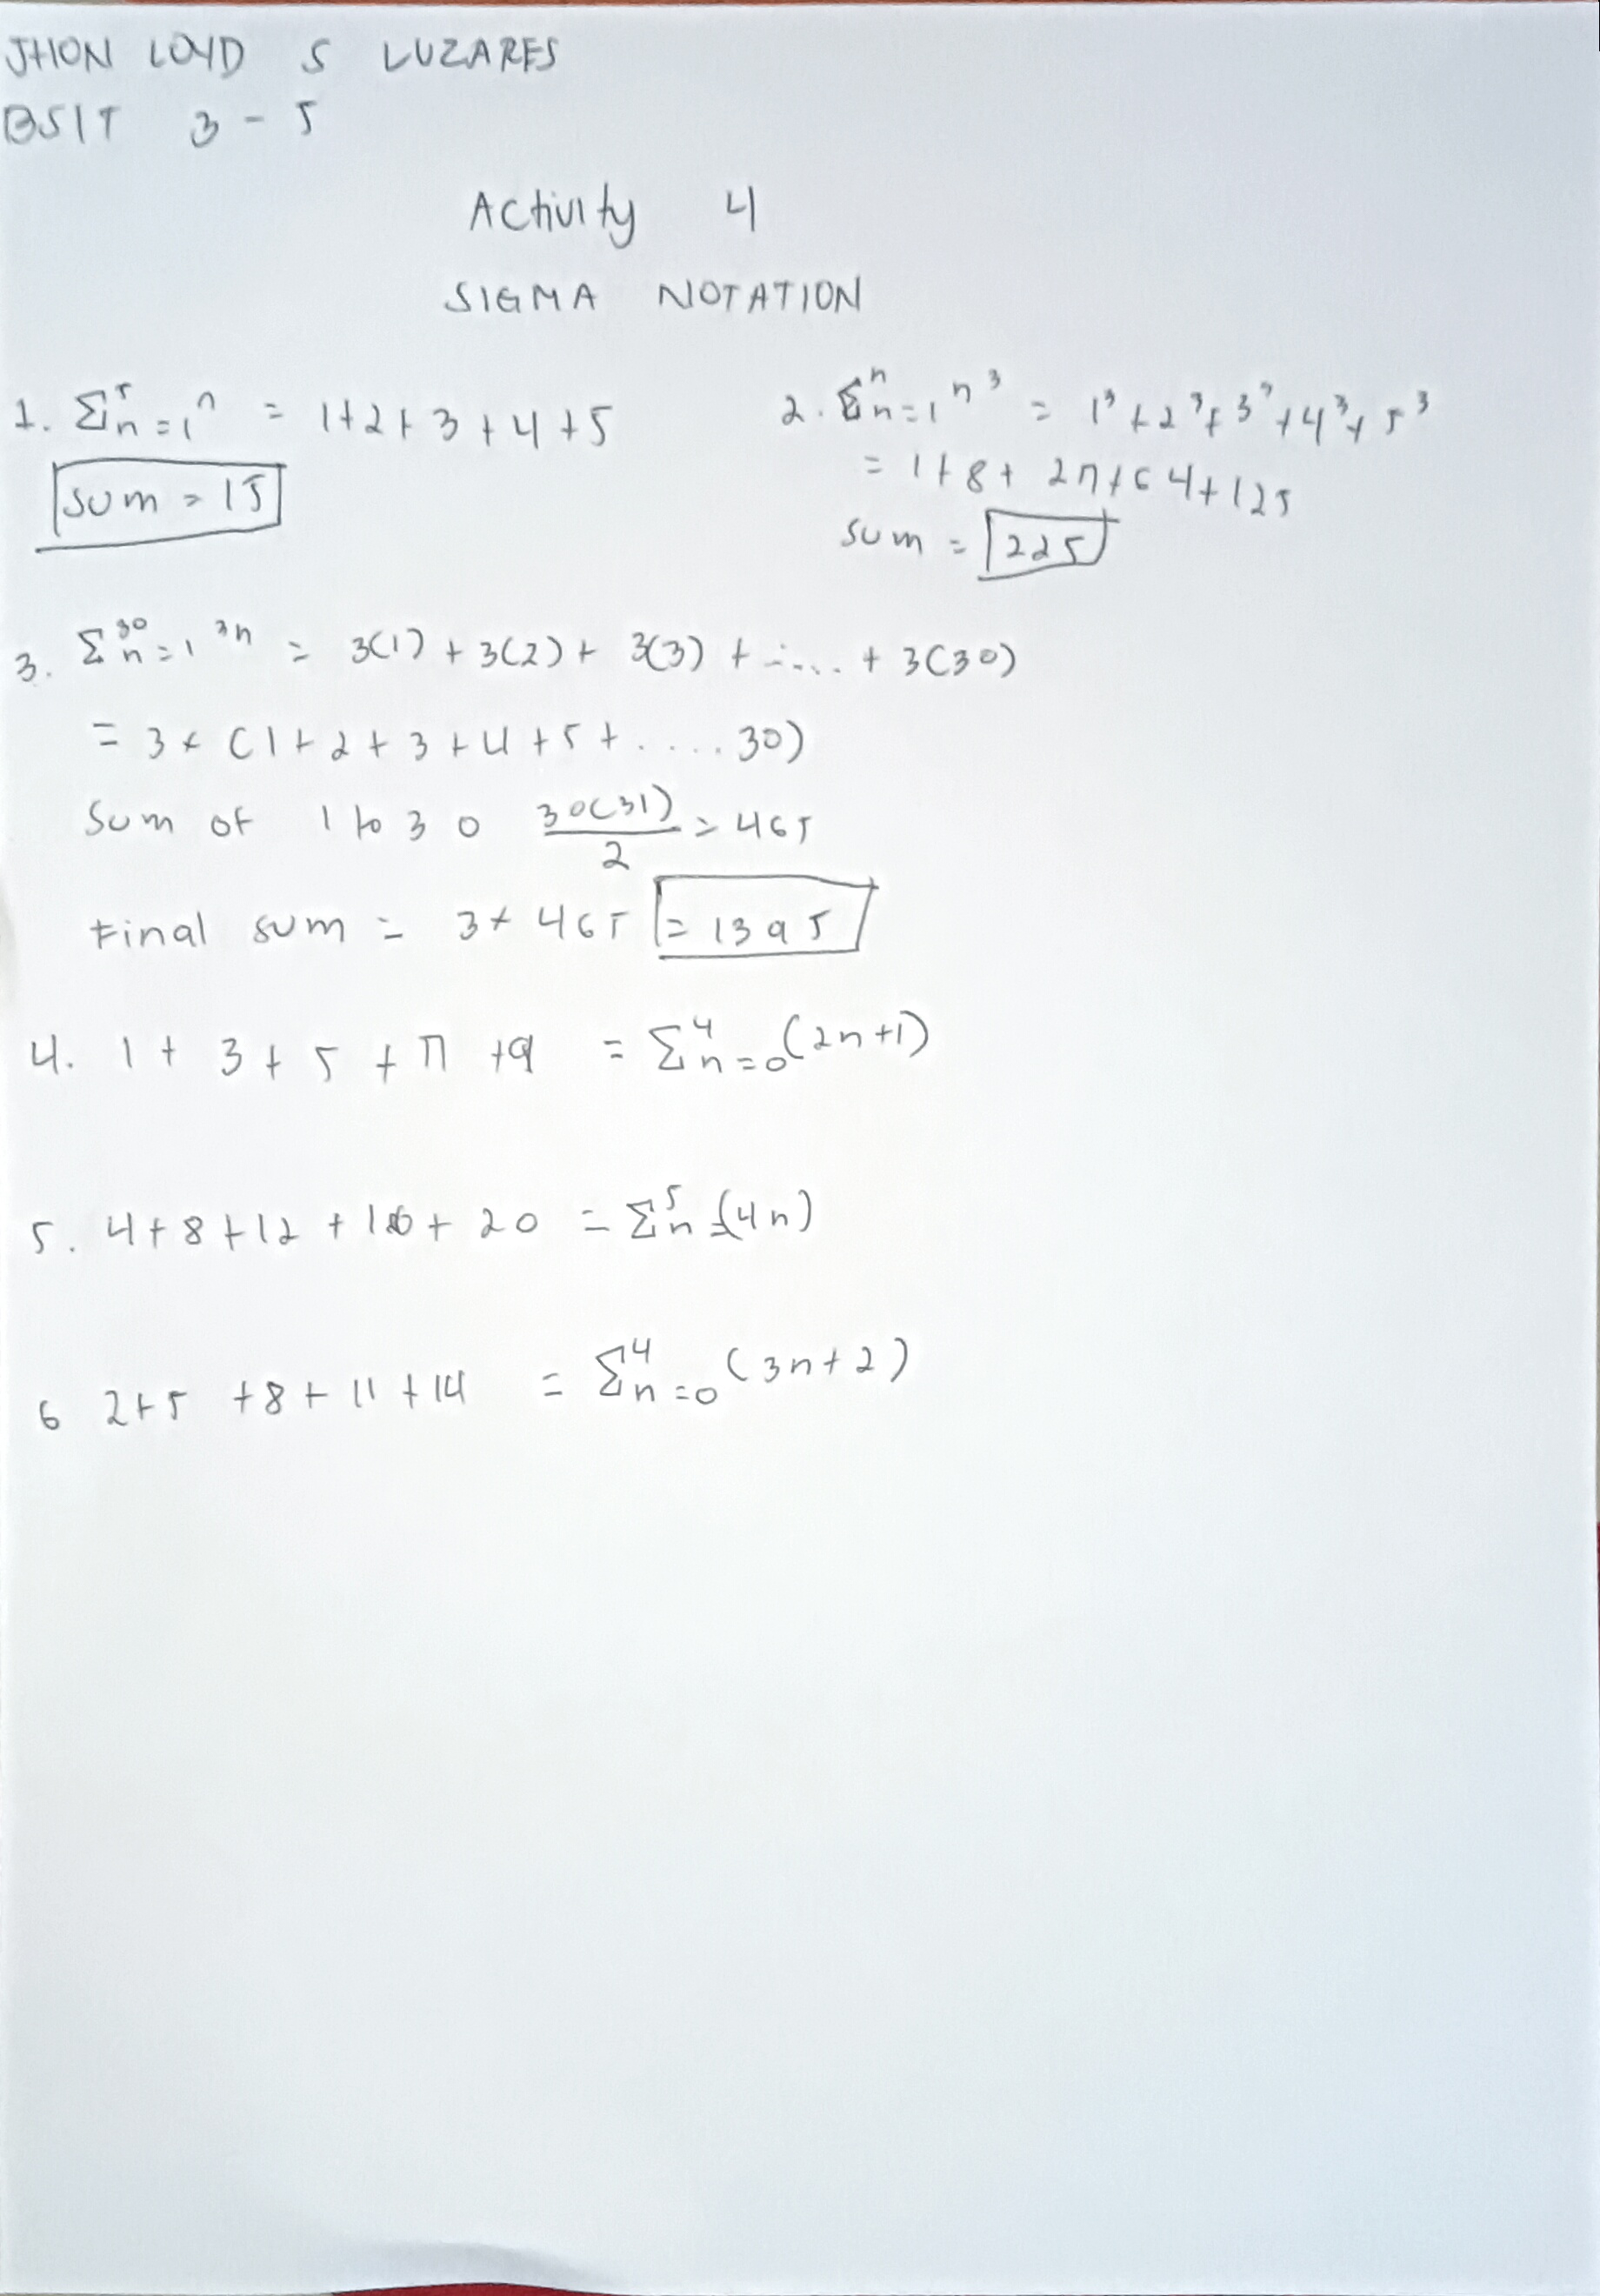 JHON LOYD S LUZARES
BSIT 3 - 5
Activity 4
SIGMA NOTATION
1. Σ⁵n=1 n = 1+2+3+4+5
sum = 15
2. Σⁿn=1 n³ = 1³+2³+3³+4³+5³
= 1+8+27+64+125
sum = 225
3. Σ³⁰n=1 3n = 3(1) + 3(2) + 3(3) + ..... + 3(30)
= 3 × (1+2+3+4+5+.....30)
Sum of 1 to 30 30(31)/2 = 465
Final sum = 3 × 465 = 1395
4. 1+ 3+ 5 +7 +9 = Σ⁴n=0 (2n+1)
5. 4+8+12+16+20 = Σ⁵n=1 (4n)
6 2+5 +8+11+14 = Σ⁴n=0 (3n+2)